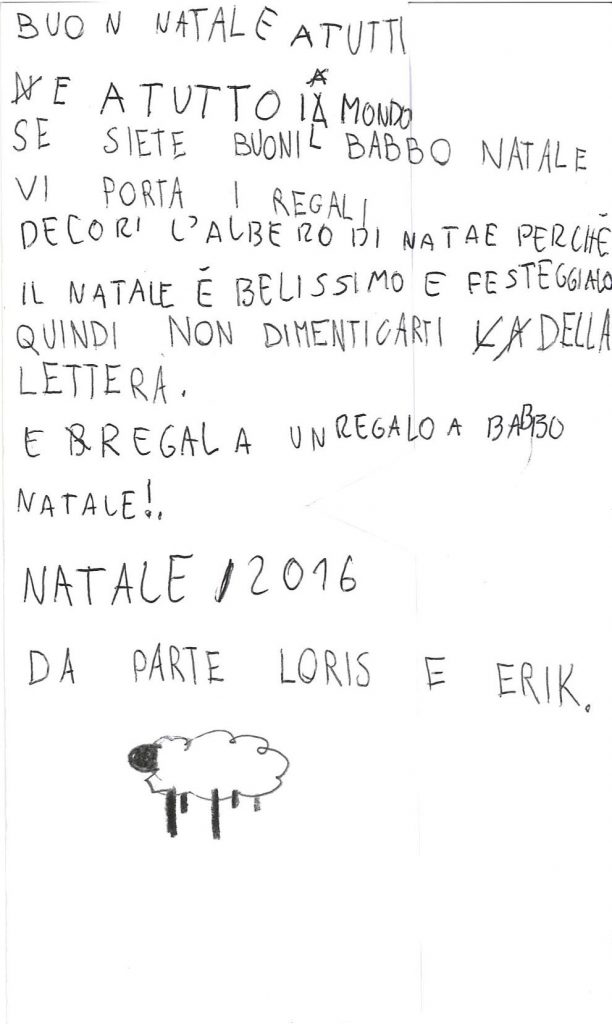 BUON NATALE A TUTTI
E A TUTTO IL MONDO
SE SIETE BUONI BABBO NATALE
VI PORTA I REGALI
DECORI L'ALBERO DI NATAE PERCHÉ
IL NATALE É BELISSIMO E FESTEGGIALO
QUINDI NON DIMENTICARTI DELLA
LETTERA.
E REGALA UN REGALO A BABBO
NATALE!.
NATALE / 2016
DA PARTE LORIS E ERIK.